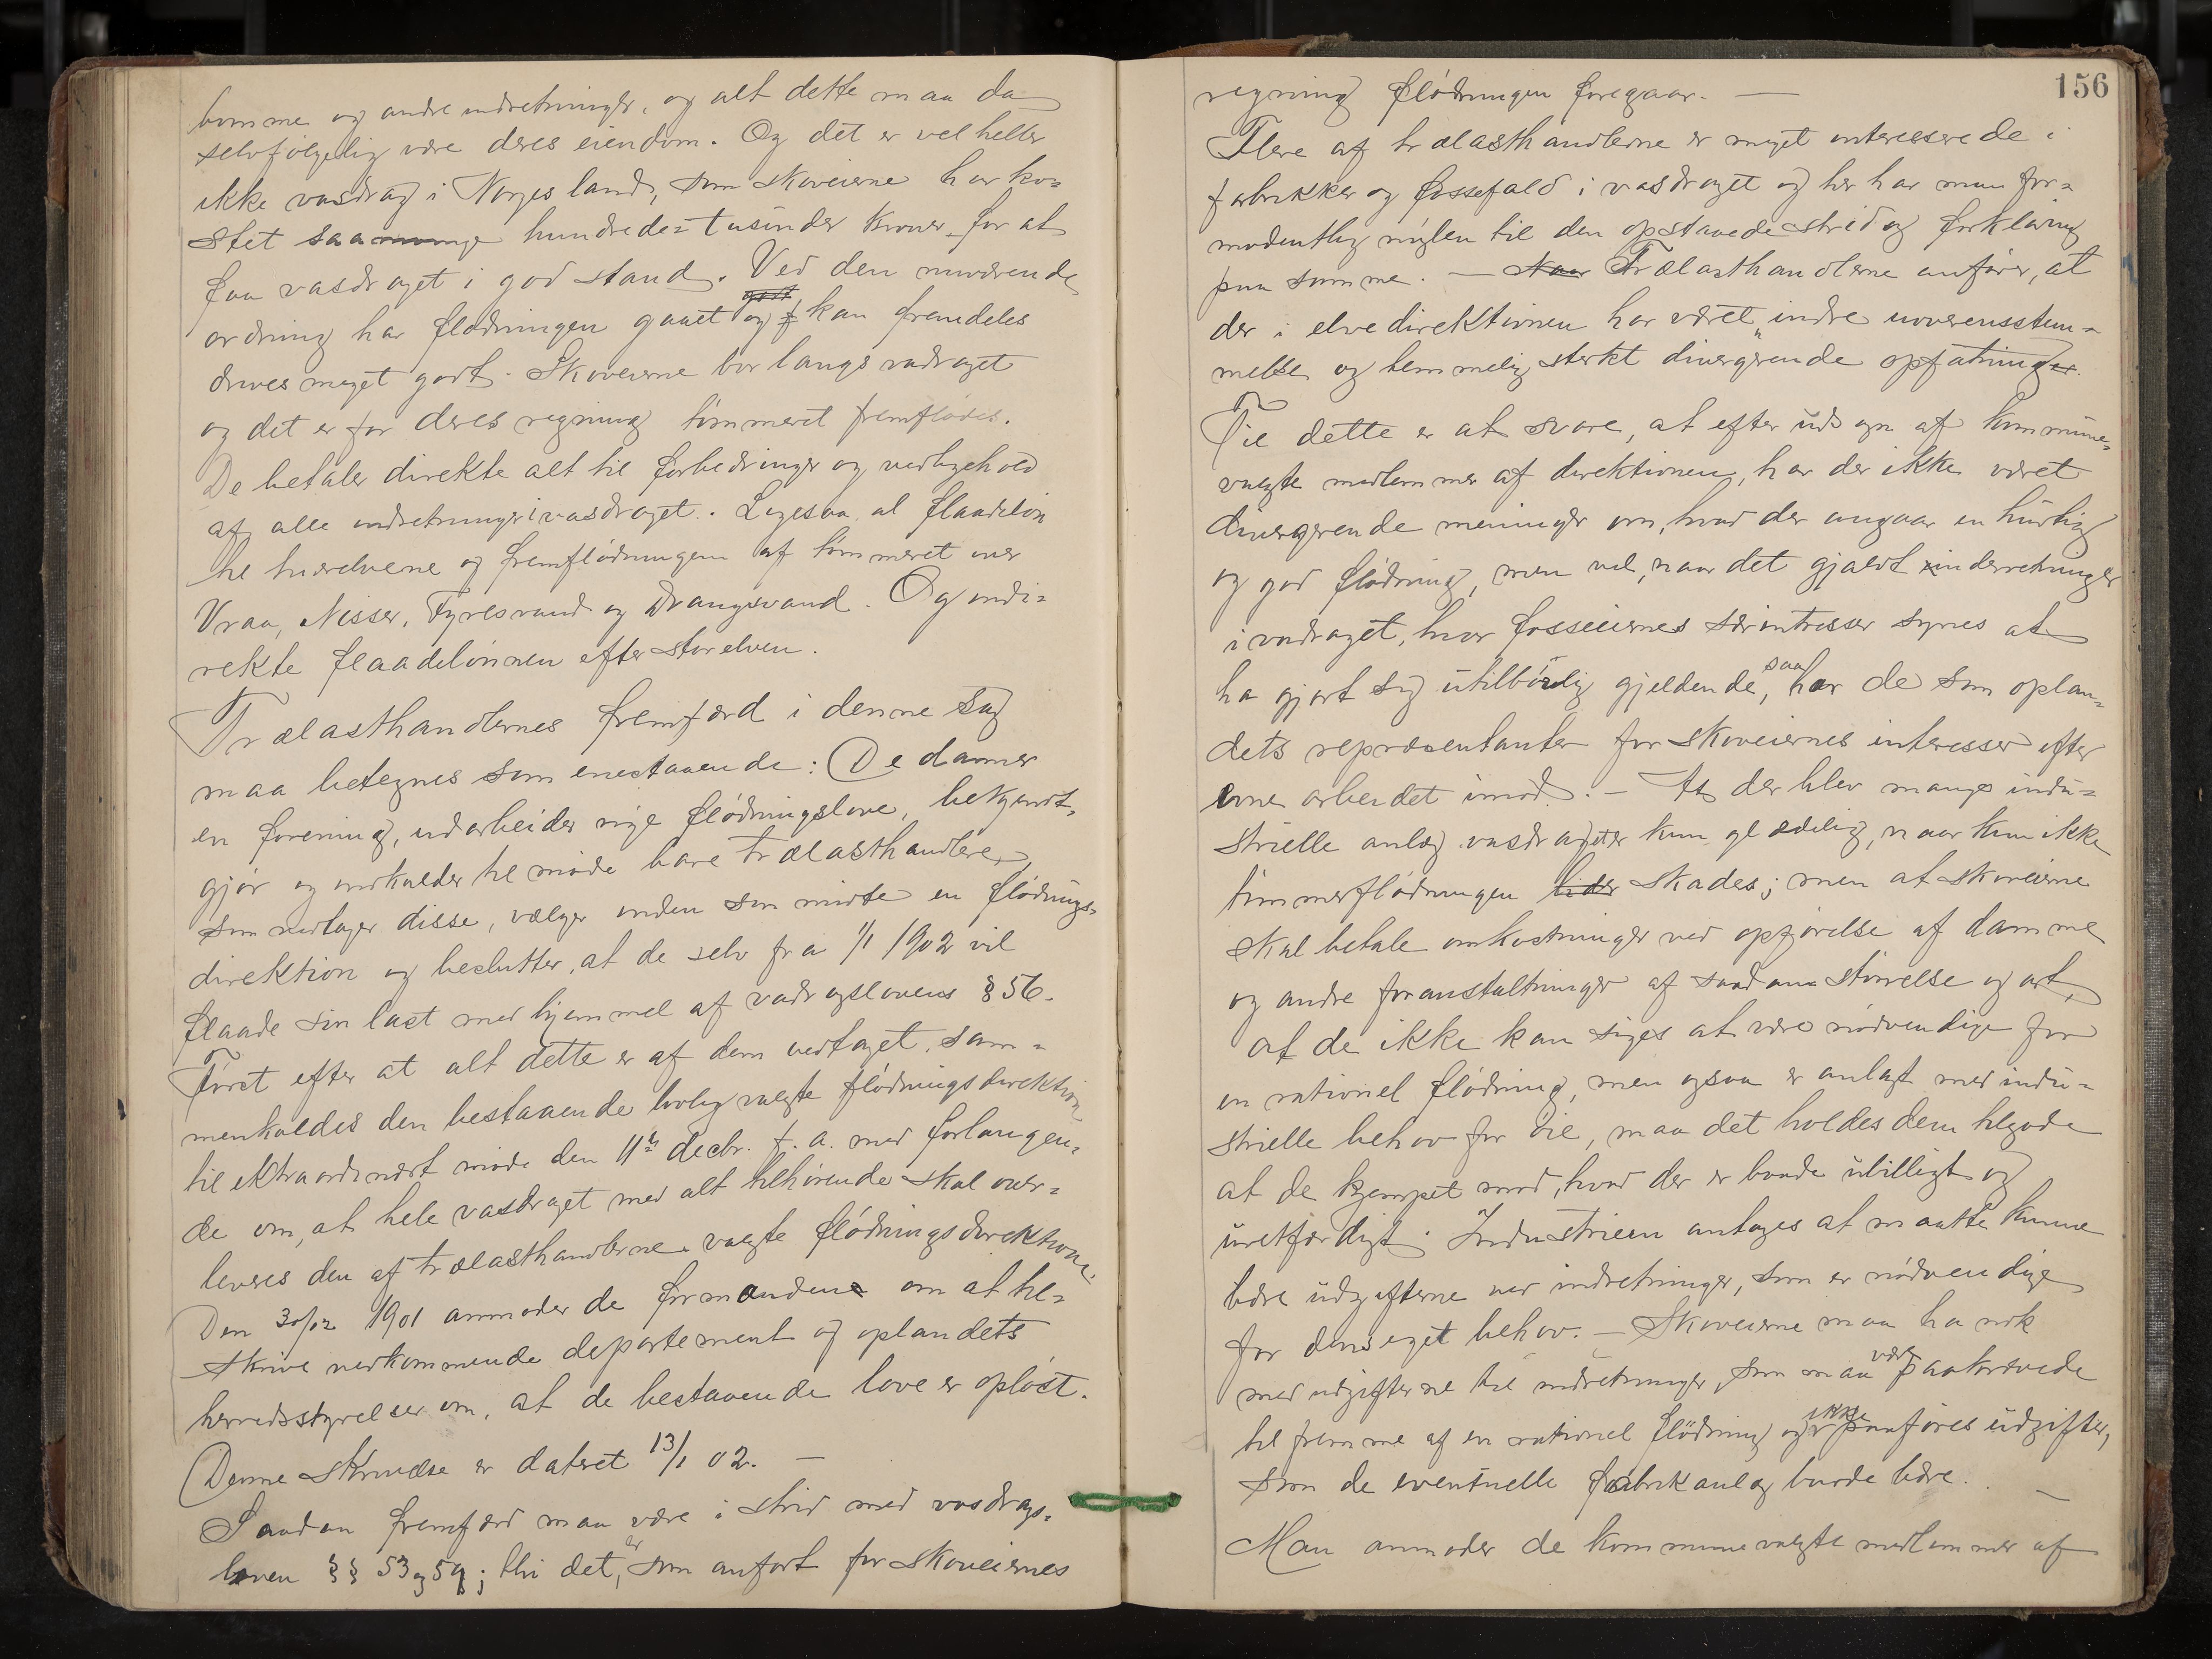 bomme og andre indretninger, og alt dette maa da
selvfølgelig være deres eiendom. Og det er vel heller
ikke vasdrag i Norges land, som skoveierne har ko=
stet saa mange hundrede=tusinder kroner for at
faa vasdraget i god stand. Ved den nuværende
ordning har flødningen gaaet godt og kan fremdeles
drives meget godt. Skoveierne bor langs vadraget
og det er for deres regning tømmeret fremflødes.
De betaler direkte alt til forbedringer og vedligehold
af alle indretninger i vasdraget. Ligesaa al flaadeløn
til tverelvene og fremflødningen af tømmeret over
Vraa, Nisser, Fyresvand og Drangsvand. Og indi=
rekte flaadelønnen efter storelven.
Trælasthandlernes fremfærd i denne sag
maa betegnes som enestaaende: De danner
en forening, udarbeider nye flødningslove, bekjendt=
gjør og indkalder til møde bare trælasthandlere,
som vedtager disse, vælger inden sin midte en flødnings=
direktion og beslutter, at de selv fra 1/1 1902 vil
flaade sin last med hjemmel af vadragslovens § 56.
Først efter at alt dette er af dem vedtaget, sam=
menkaldes den bestaaende lovlig valgte flødningsdirektion
til ekstraordinært møde den 11te decbr. f. a. med forlangen=
de om, at hele vasdraget med alt tilhørende skal over=
leveres den af trælasthandlerne valgte flødningsdirektion.
Den 30/12 1901 anmoder de formanden om at til=
skrive vedkommende departement og oplandets
herredsstyrelser om, at de bestaaende love er opløst.
Denne skrivelse er dateret 13/1 02. —
Saadan fremfærd maa være i strid med vasdrags=
loven §§ 53 og 54; thi det, er som anført for skoveiernes
156
regning flødningen foregaar. —
Flere af trælasthandlerne er meget interessere de i
fabrikker og fossefald i vasdraget og her har man for=
modentlig nøglen til den opstaaede strid og forklaring
paa samme. — Naar Trælasthandlerne anfører, at
der i elvedirektionen har været „indre uoverensstem=
melse og temmelig sterkt divergerende opfatninger
Til dette er at svare, at efter udsagn af kommune=
valgte medlemmer af direktionen, har der ikke været
divergerende meninger om, hvad der angaar en hurtig
og god flødning, men vel, naar det gjaldt inderretninger
i vadraget, hvor fosseeiernes særintresser synes at
ha gjort sig utilbørlig gjeldende, saa har de som oplan=
dets repræsentanter for skoveiernes interesser efter
evne arbeidet imod. — At der blev mange indu=
strielle anlæg i vasdraget er kun glædelig, naar kun ikke
tømmerflødningen lider skades; men at skoveierne
skal betale omkostninger ved opførelse af damme
og andre foranstaltninger af saadan størrelse og art,
at de ikke kan siges at være nødvendige for
en rationel flødning, men ogsaa er anlagt med indu=
strielle behov for øie, maa det holdes dem tilgode
at de kjempet mod, hvad der er baade ubilligt og
uretfærdigt. Industrien antages at maatte kunne
bære udgifterne ved indretninger, som er nødvendige
for dens eget behov. — Skoveierne maa ha nok
med udgifterne til indretninger, som maa være paakrævede
til fremme af en rationel flødning og ikke paaføres udgifter,
som de eventuelle fabrikanlæg burde bære. —
Man anmoder de kommunevalgte medlemmer af